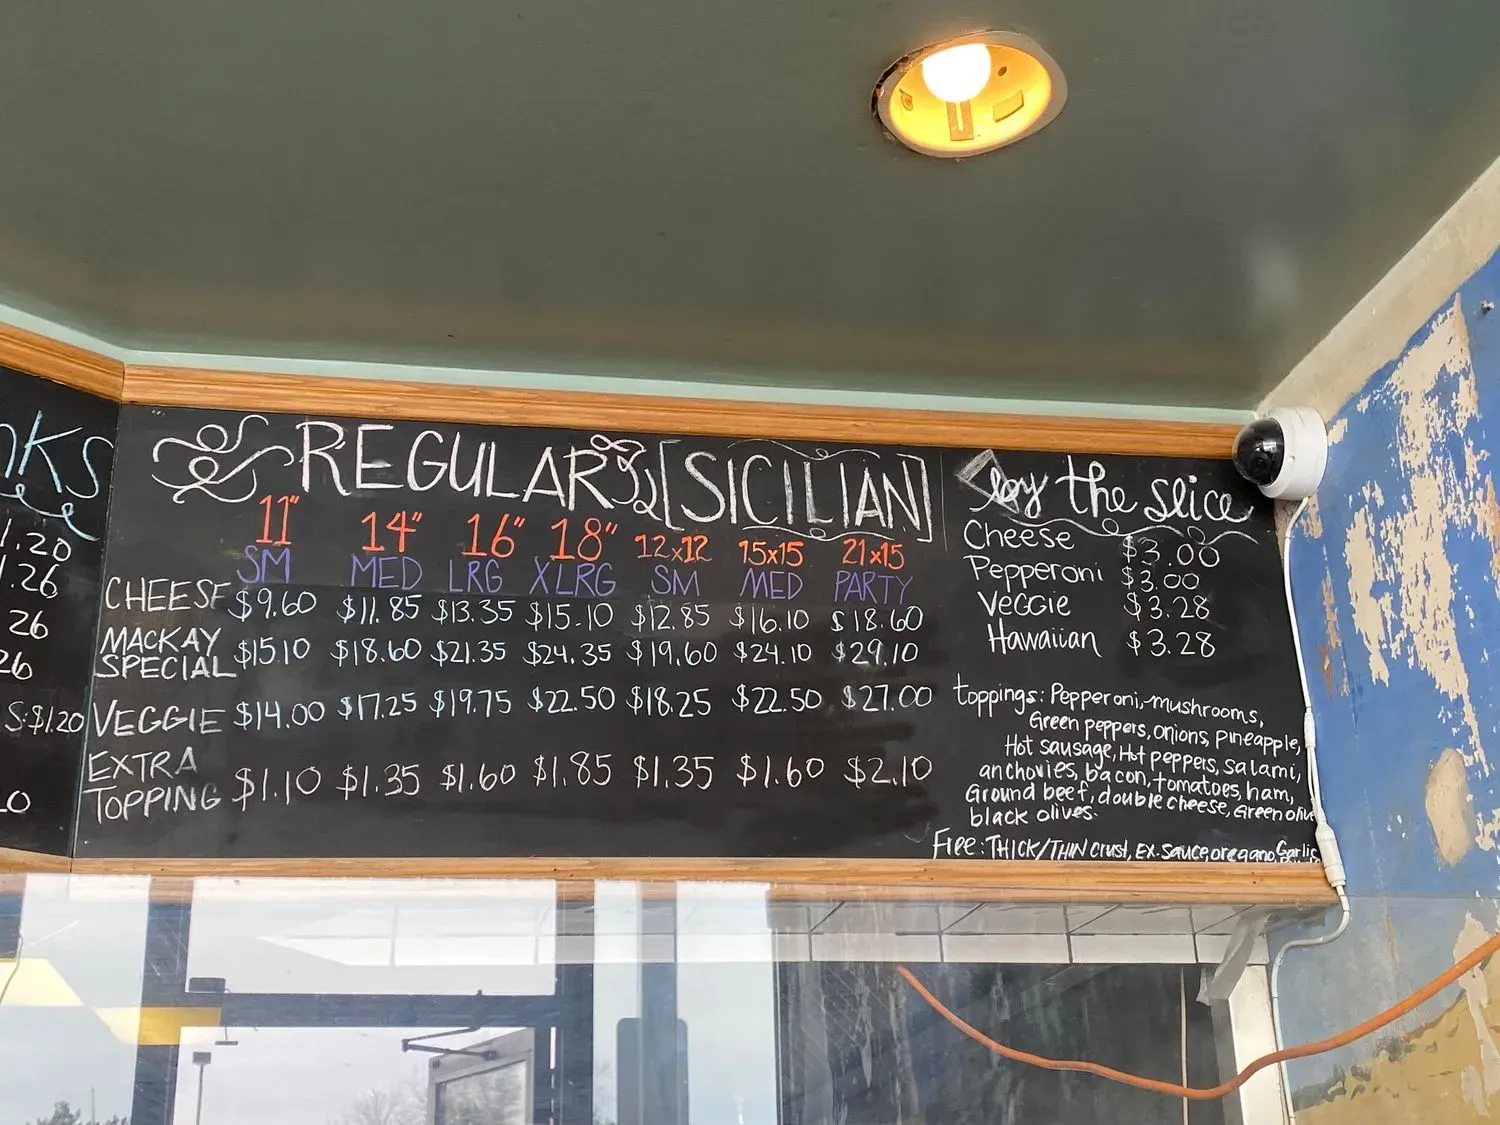 REGULAR [SICILIAN]
11" 14" 16" 18" 12x12 15x15 21x15
SM MED LRG XLRG SM MED PARTY
CHEESE $9.60 $11.85 $13.35 $15.10 $12.85 $16.10 $18.60
MACKAY
SPECIAL $15.10 $18.60 $21.35 $24.35 $19.60 $24.10 $29.10
VEGGIE $14.00 $17.25 $19.75 $22.50 $18.25 $22.50 $27.00
EXTRA
TOPPING $1.10 $1.35 $1.60 $1.85 $1.35 $1.60 $2.10
by the slice
Cheese $3.00
Pepperoni $3.00
Veggie $3.28
Hawaiian $3.28
toppings: Pepperoni, mushrooms,
Green peppers, onions, pineapple,
Hot sausage, Hot peppers, salami,
anchovies, bacon, tomatoes, ham,
Ground beef, double cheese, Green olive
black olives.
Free: THICK/THIN crust, EX. sauce, oregano, Garlic
1.20
.26
26
26
S:$1.20